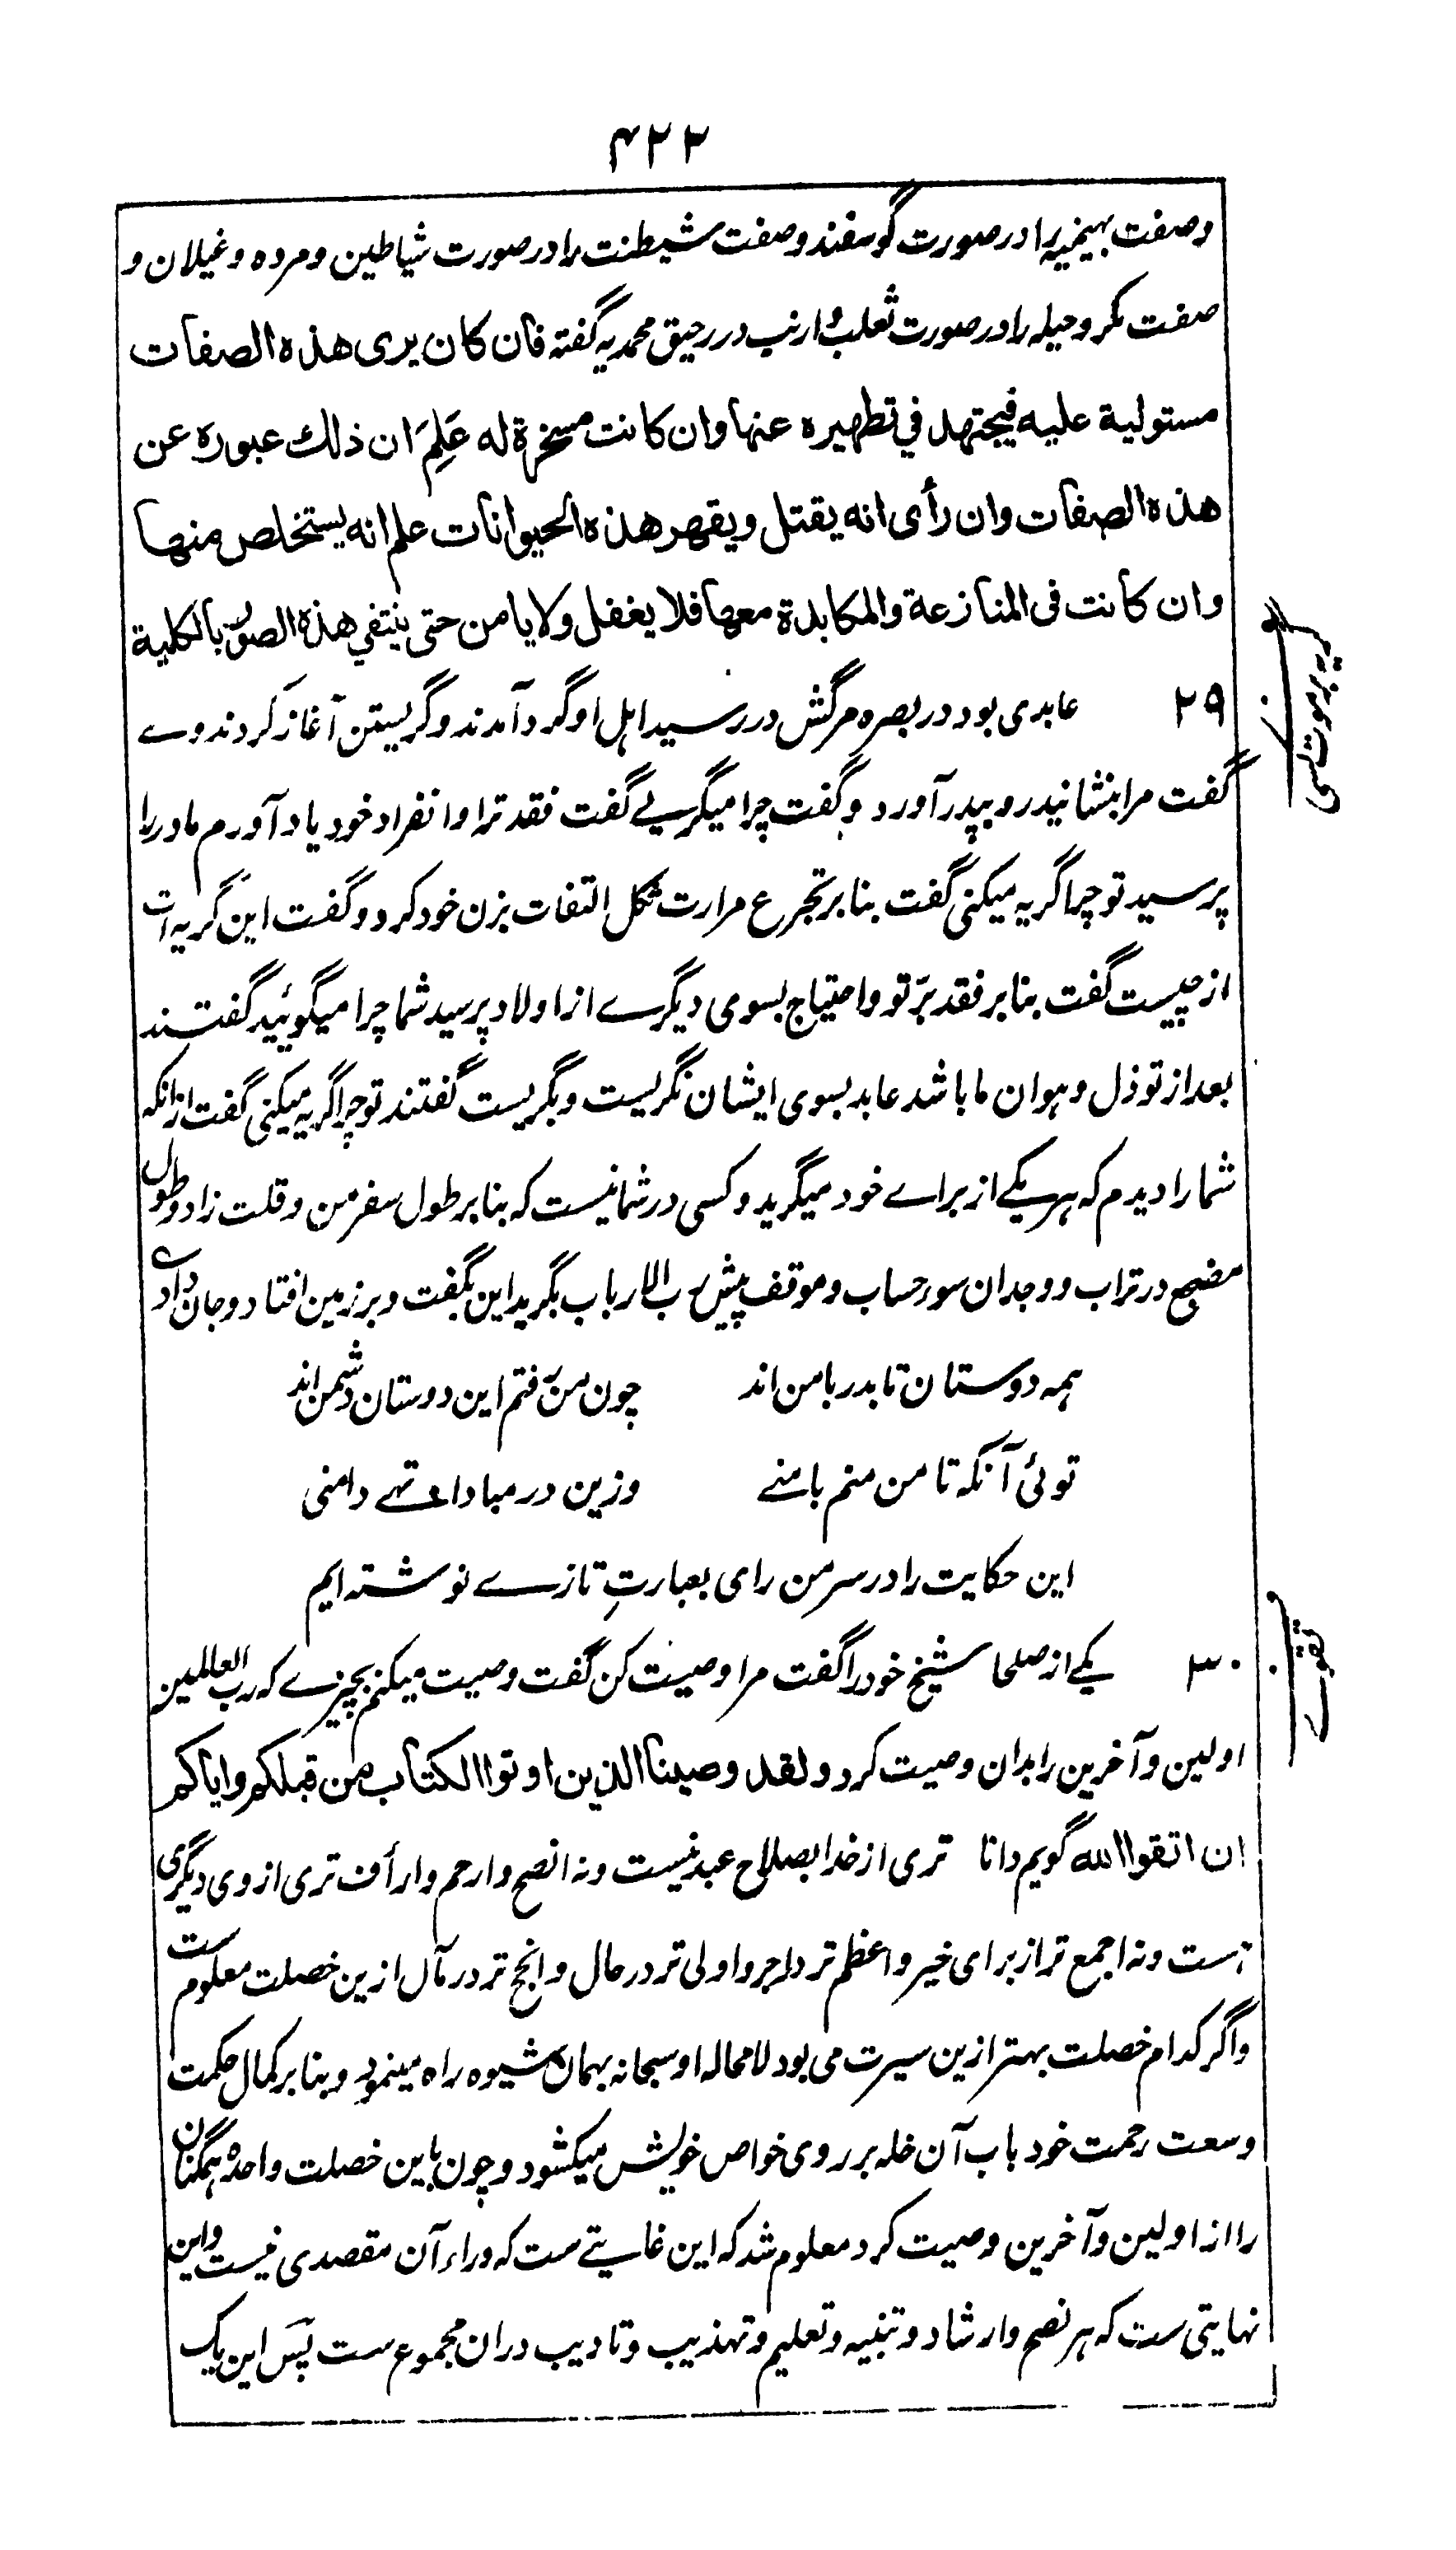 ۴۲۲
و صفت بهیمیه را در صورت گوسفند و صفت شیطنت را در صورت شیاطین و مرده و غیلان و
صفت مکر و حیله را در صورت ثعلب و ارنب در رحیق محمدیه گفته فان کان یری هذه الصفات
مستولیة علیه فیجتهد فی تطهیره عنها وان کانت مسخرة له عَلِمَ ان ذلك عبوره عن
هذه الصفات وان رأی انه یقتل ویقهر هذه الحیوانات علم انه یستخلص منها
وان کانت فی المنازعة والمکابدة معها فلا یغفل ولا یامن حتی ینتفی هذه الصور بالکلیة
۲۹ عابدی بود در بصره مرگش در رسید اهل او گرد آمدند و گریستن آغاز کردند وے
گفت مرا بنشانید رو بپدر آورد و گفت چرا میگریے گفت فقد ترا و انفراد خود یاد آورم مادر را
پرسید تو چرا گریه میکنی گفت بنا بر تجرع مرارت ثکل التفات بزن خود کرد و گفت این گریه ات
از چیست گفت بنا بر فقد برّ تو و احتیاج بسوی دیگرے از اولاد پرسید شما چرا میگوئید گفتند
بعد از تو ذل و هوان ما باشد عابد بسوی ایشان نگریست و بگریست گفتند تو چرا گریه میکنی گفت ازانکه
شما را دیدم که هر یکے از براے خود میگرید و کسی در شما نیست که بنا بر طول سفر من و قلت زاد و طول
مضجع در تراب و وجدان سوء حساب و موقف پیش رب الارباب بگرید این بگفت و بر زمین افتاد و جان داد
همه دوستان تا بدر با من اند چون من رفتم این دوستان دشمن اند
توئی آنکه تا من منم با منے وزین در مبادا تهے دامنی
این حکایت را در سر من رای بعبارتِ تازے نوشته ایم
۳۰ یکے از صلحا شیخ خود را گفت مرا وصیت کن گفت وصیت میکنم بچیزے که رب العالمین
اولین و آخرین را بدان وصیت کرد ولقد وصینا الذین اوتوا الکتاب من قبلکم وایاکم
ان اتقوا الله گویم دانا تری از خدا بصلاح عبد نیست و نه انصح و ارحم و ارأف تری از وی دیگری
هست و نه اجمع تر از برای خیر و اعظم تر در اجر و اولی تر در حال و انجح تر در مآل ازین خصلت معلوم ست
و اگر کدام خصلت بهتر ازین سیرت می بود لا محاله او سبحانه بهمان شیوه راه مینمود و بنا بر کمال حکمت
وسعت رحمت خود باب آن خله بر روی خواص خویش میکشود و چون باین خصلت واحده همگنان
را از اولین و آخرین وصیت کرد معلوم شد که این غایتے ست که وراء آن مقصدی نیست و این
نهایتی ست که هر نصح و ارشاد و تنبیه و تعلیم و تهذیب و تادیب دران مجموع ست پس این یک
تقوے